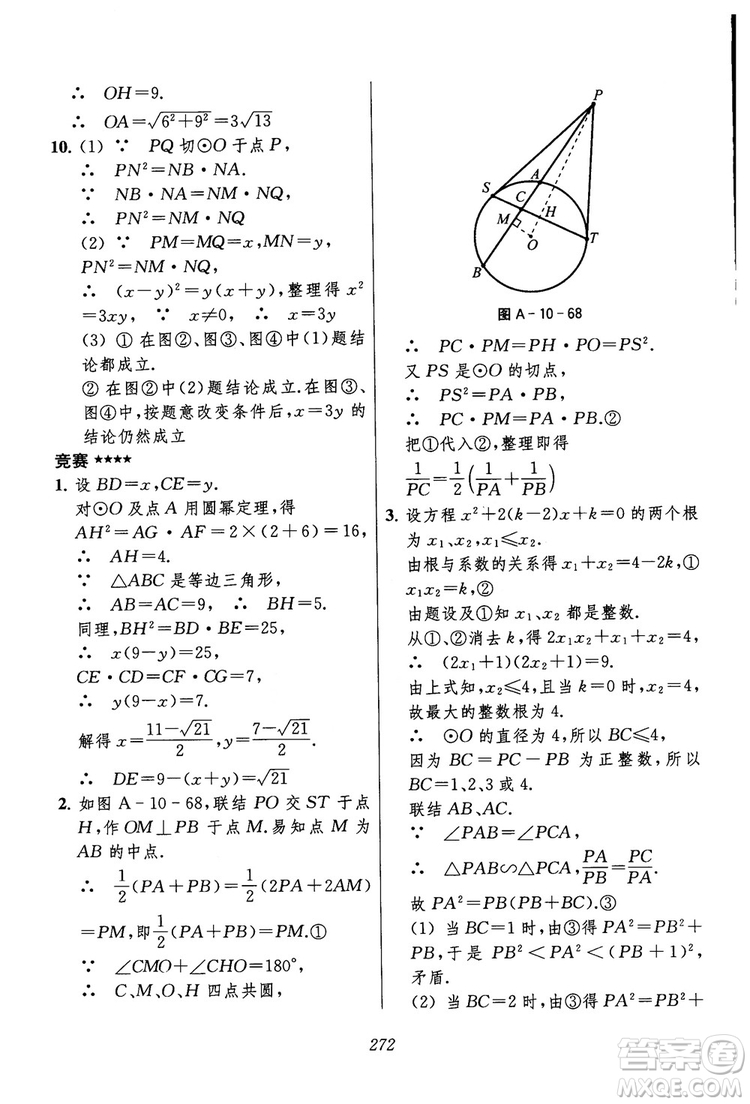 ∴ OH=9.
∴ OA=√(6²+9²)=3√13
10. (1) ∵ PQ切⊙O于点P,
∴ PN²=NB·NA.
∵ NB·NA=NM·NQ,
∴ PN²=NM·NQ
(2) ∵ PM=MQ=x,MN=y,
∴ PN²=NM·NQ,
∴ (x-y)²=y(x+y),整理得 x²
=3xy, ∵ x≠0, ∴ x=3y
(3) ① 在图②、图③、图④中(1)题结
论都成立.
② 在图②中(2)题结论成立.在图③、
图④中,按题意改变条件后,x=3y的
结论仍然成立
竞赛 ★★★★
1. 设BD=x,CE=y.
对⊙O及点A用圆幂定理,得
AH²=AG·AF=2×(2+6)=16,
∴ AH=4.
∵ △ABC是等边三角形,
∴ AB=AC=9, ∴ BH=5.
同理,BH²=BD·BE=25,
∴ x(9-y)=25,
CE·CD=CF·CG=7,
∴ y(9-x)=7.
解得x=(11-√21)/2,y=(7-√21)/2.
∴ DE=9-(x+y)=√21
2. 如图A-10-68,联结PO交ST于点
H,作OM⊥PB于点M.易知点M为
AB的中点.
∴ 1/2(PA+PB)=1/2(2PA+2AM)
=PM,即1/2(PA+PB)=PM.①
∵ ∠CMO+∠CHO=180°,
∴ C、M、O、H四点共圆,
P
A
S
C
H
M
O
T
B
图A-10-68
∴ PC·PM=PH·PO=PS².
又PS是⊙O的切点,
∴ PS²=PA·PB,
∴ PC·PM=PA·PB.②
把①代入②,整理即得
1/PC=1/2(1/PA+1/PB)
3. 设方程x²+2(k-2)x+k=0的两个根
为x₁、x₂,x₁≤x₂.
由根与系数的关系得x₁+x₂=4-2k,①
x₁x₂=k,②
由题设及①知x₁、x₂都是整数.
从①、②消去k,得2x₁x₂+x₁+x₂=4,
∴ (2x₁+1)(2x₂+1)=9.
由上式知,x₂≤4,且当k=0时,x₂=4,
故最大的整数根为4.
∴ ⊙O的直径为4,所以BC≤4,
因为BC=PC-PB为正整数,所以
BC=1、2、3或4.
联结AB、AC.
∵ ∠PAB=∠PCA,
∴ △PAB∽△PCA,PA/PB=PC/PA.
故PA²=PB(PB+BC).③
(1) 当BC=1时,由③得PA²=PB²+
PB,于是PB²<PA²<(PB+1)²,
矛盾.
(2) 当BC=2时,由③得PA²=PB²+
272
答案圈
MXQE.COM